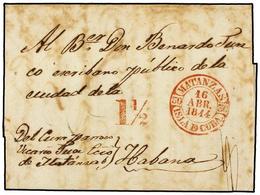 Al Ber. Don Bernardo Fran
co escribano público de la
ciudad de la
1 1/2
MATANZAS
16
ABR.
1844
YSLA D CUBA
Del Comp
Vicario Juez Ecco
de Matanzas
Habana